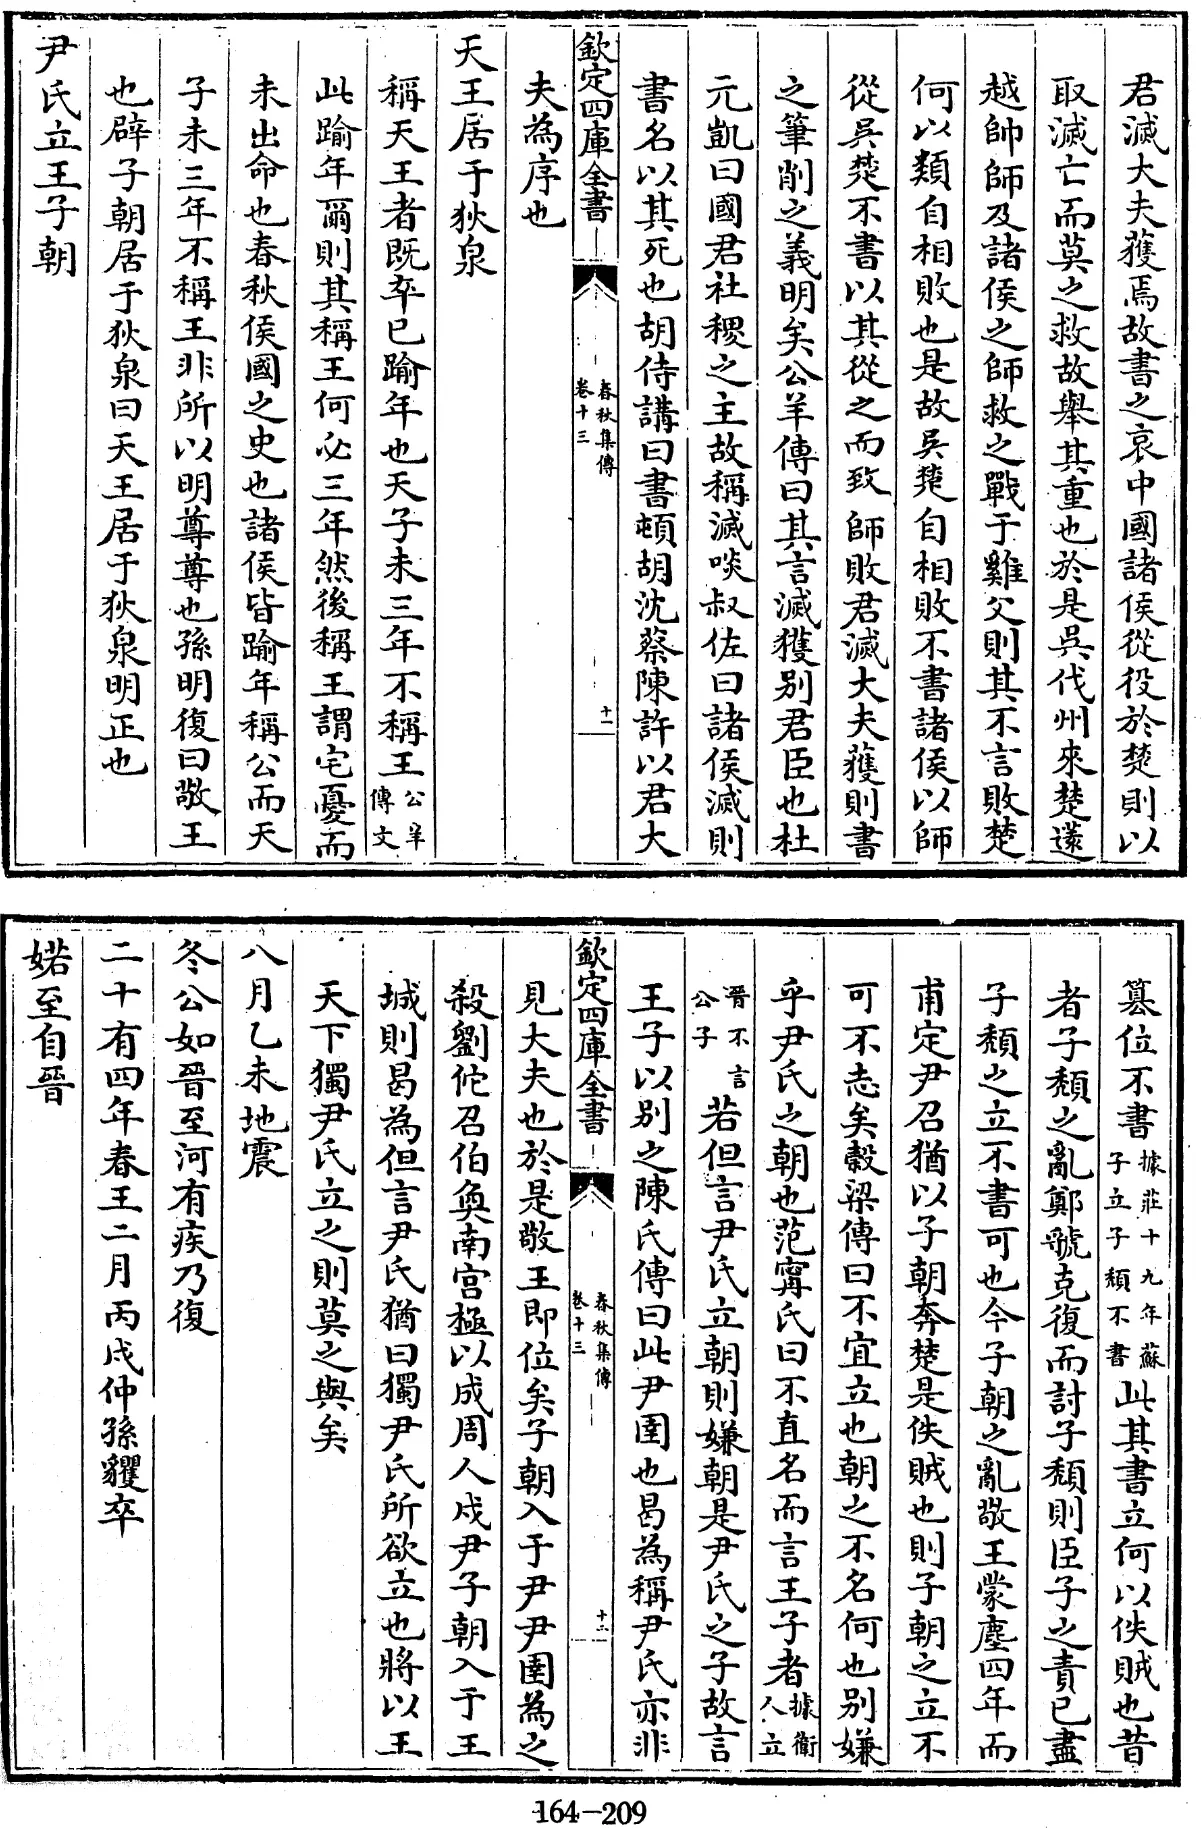 君滅大夫獲焉故書之哀中國諸侯從役於楚則以
取滅亡而莫之救故舉其重也於是吳伐州來楚薳
越帥師及諸侯之師救之戰于雞父則其不言敗楚
何以類自相敗也是故吳楚自相敗不書諸侯以師
從吳楚不書以其從之而致師敗君滅大夫獲則書
之筆削之義明矣公羊傳曰其言滅獲别君臣也杜
元凱曰國君社稷之主故稱滅啖叔佐曰諸侯滅則
書名以其死也胡侍講曰書頓胡沈蔡陳許以君大
欽定四庫全書
春秋集傳
卷十三
十一
夫為序也
天王居于狄泉
稱天王者既卒已踰年也天子未三年不稱王公羊
傳文
此踰年爾則其稱王何必三年然後稱王謂宅憂而
未出命也春秋侯國之史也諸侯皆踰年稱公而天
子未三年不稱王非所以明尊尊也孫明復曰敬王
也辟子朝居于狄泉曰天王居于狄泉明正也
尹氏立王子朝
簒位不書據莊十九年蘇
子立子頹不書此其書立何以佚賊也昔
者子頹之亂鄭虢克復而討子頹則臣子之責已盡
子頹之立不書可也今子朝之亂敬王蒙塵四年而
甫定尹召猶以子朝奔楚是佚賊也則子朝之立不
可不志矣穀梁傳曰不宜立也朝之不名何也别嫌
乎尹氏之朝也范甯氏曰不直名而言王子者據衞
人立
晉不言
公子若但言尹氏立朝則嫌朝是尹氏之子故言
王子以别之陳氏傳曰此尹圉也曷為稱尹氏亦非
欽定四庫全書
春秋集傳
卷十三
十二
見大夫也於是敬王即位矣子朝入于尹尹圉為之
殺劉佗召伯奐南宫極以成周人戍尹子朝入于王
城則曷為但言尹氏猶曰獨尹氏所欲立也將以王
天下獨尹氏立之則莫之與矣
八月乙未地震
冬公如晉至河有疾乃復
二十有四年春王二月丙戌仲孫貜卒
婼至自晉
164-209